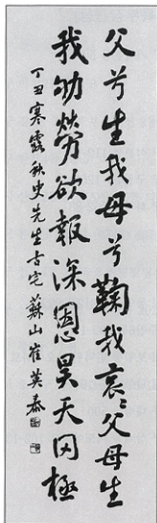 父兮生我母兮鞠我哀〻父母生
我劬勞欲報深恩昊天罔極
丁丑寒露秋史先生古宅 蘇山 崔英泰